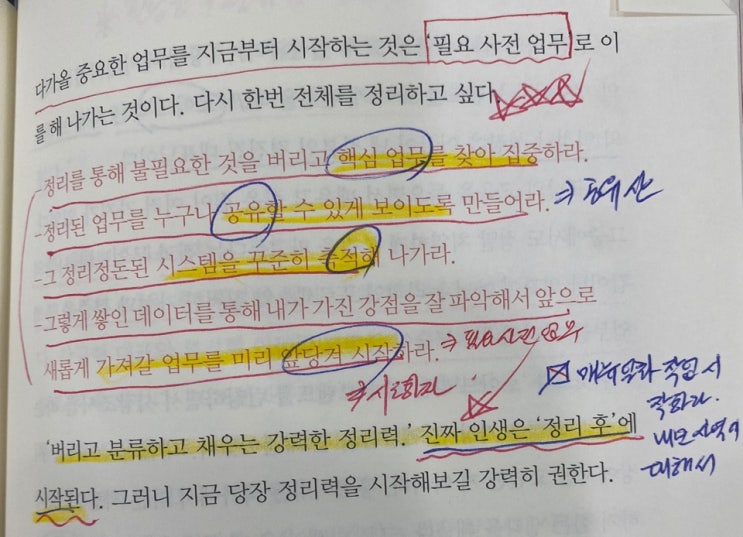 다가올 중요한 업무를 지금부터 시작하는 것은 '필요 사전 업무'로 이
를 해 나가는 것이다. 다시 한번 전체를 정리하고 싶다.
-정리를 통해 불필요한 것을 버리고 핵심 업무를 찾아 집중하라.
-정리된 업무를 누구나 공유할 수 있게 보이도록 만들어라.
-그 정리정돈된 시스템을 꾸준히 축적해 나가라.
-그렇게 쌓인 데이터를 통해 내가 가진 강점을 잘 파악해서 앞으로
새롭게 가져갈 업무를 미리 앞당겨 시작하라.
⇒ 필요사전업무
'버리고 분류하고 채우는 강력한 정리력.' 진짜 인생은 '정리 후'에
시작된다. 그러니 지금 당장 정리력을 시작해보길 강력히 권한다.